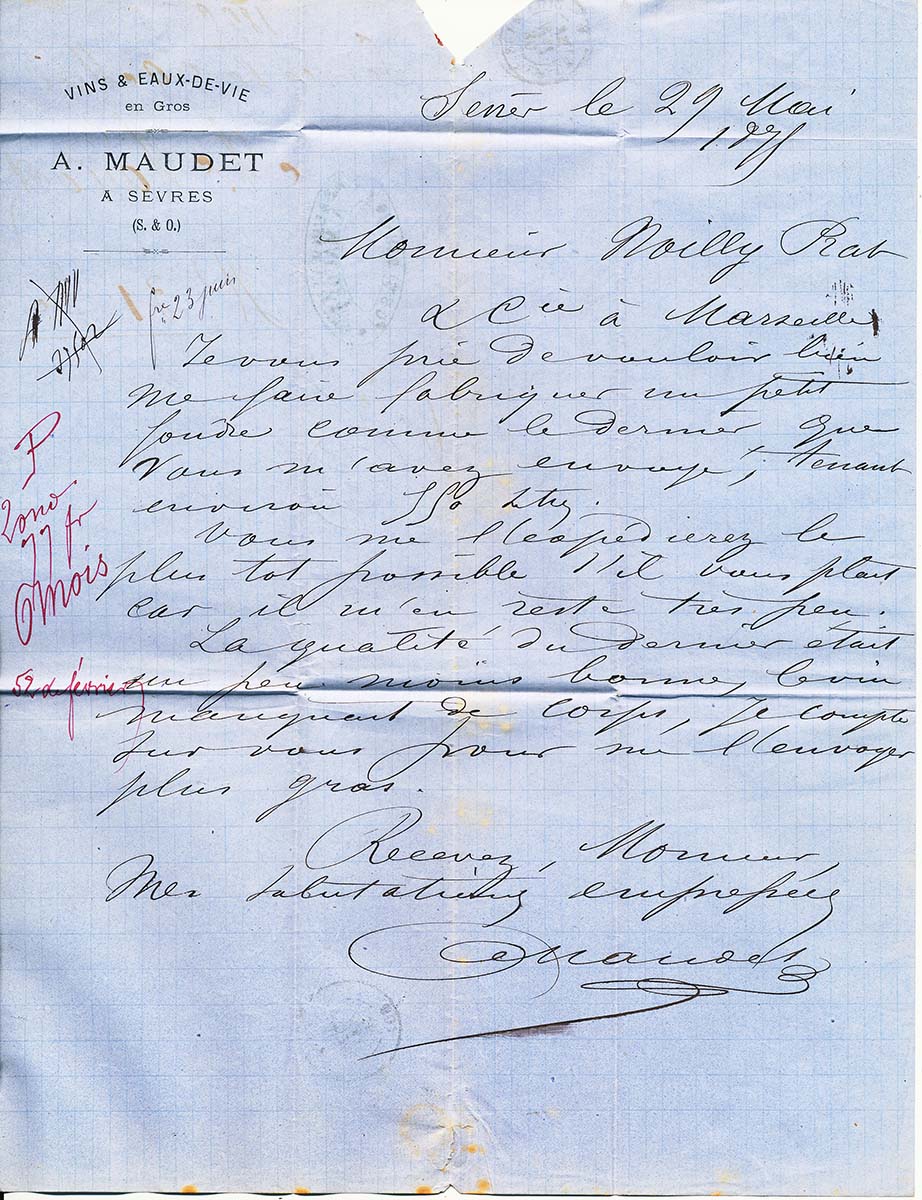 VINS & EAUX-DE-VIE
en Gros
A. MAUDET
A SÈVRES
(S. & O.)
Sèvres le 29 Mai
1875
Monsieur Noilly Prat
& Cie à Marseille
fre 23 juin
Je vous prie de vouloir bien
me faire fabriquer un petit
foudre comme le dernier que
Vous m'avez envoyé, tenant
environ 550 Litres.
Vous me l'expédierez le
plus tot possible s'il vous plait
car il m'en reste très peu.
La qualité du dernier était
un peu moins bonne, le vin
manquant de corps, je compte
sur vous pour me l'envoyer
plus gras.
Recevez, Monsieur,
Mes salutations empressées
Maudet
P
77 fr
mois
52 de février